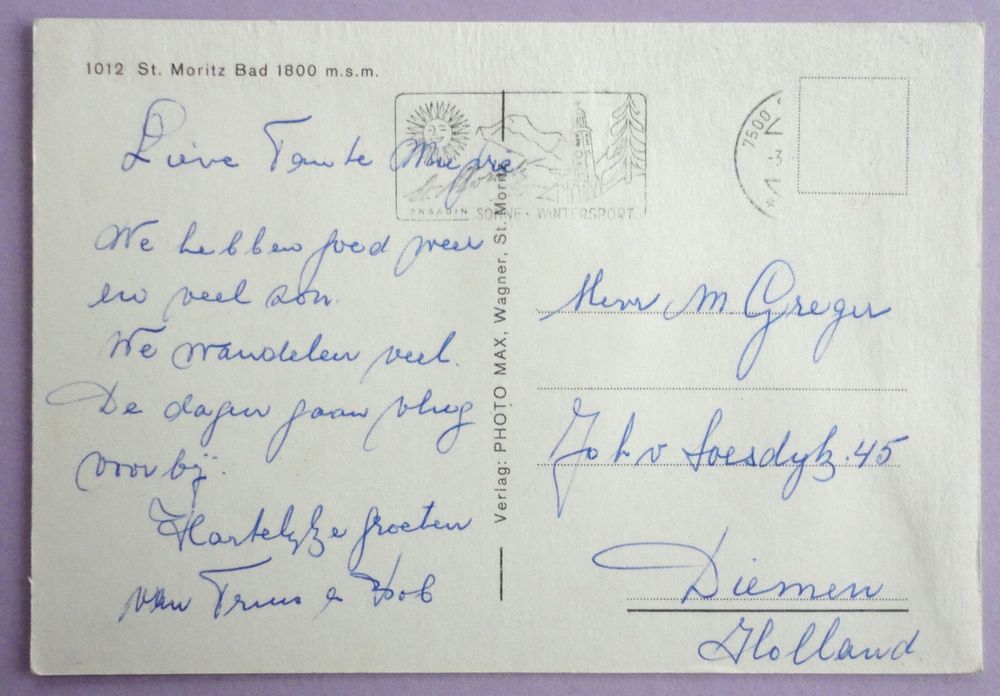 1012 St. Moritz Bad 1800 m.s.m.
Lieve Tante
We hebben goed weer
en veel zon.
We wandelen veel.
De dagen gaan vlug
voorbij.
Hartelijke groeten
van Truus &
ENGADIN SONNE · WINTERSPORT
St. Moritz
7500
-3.
Verlag: PHOTO MAX, Wagner, St. Moritz
M. Greger
Joh v Soesdyk. 45
Diemen
Holland